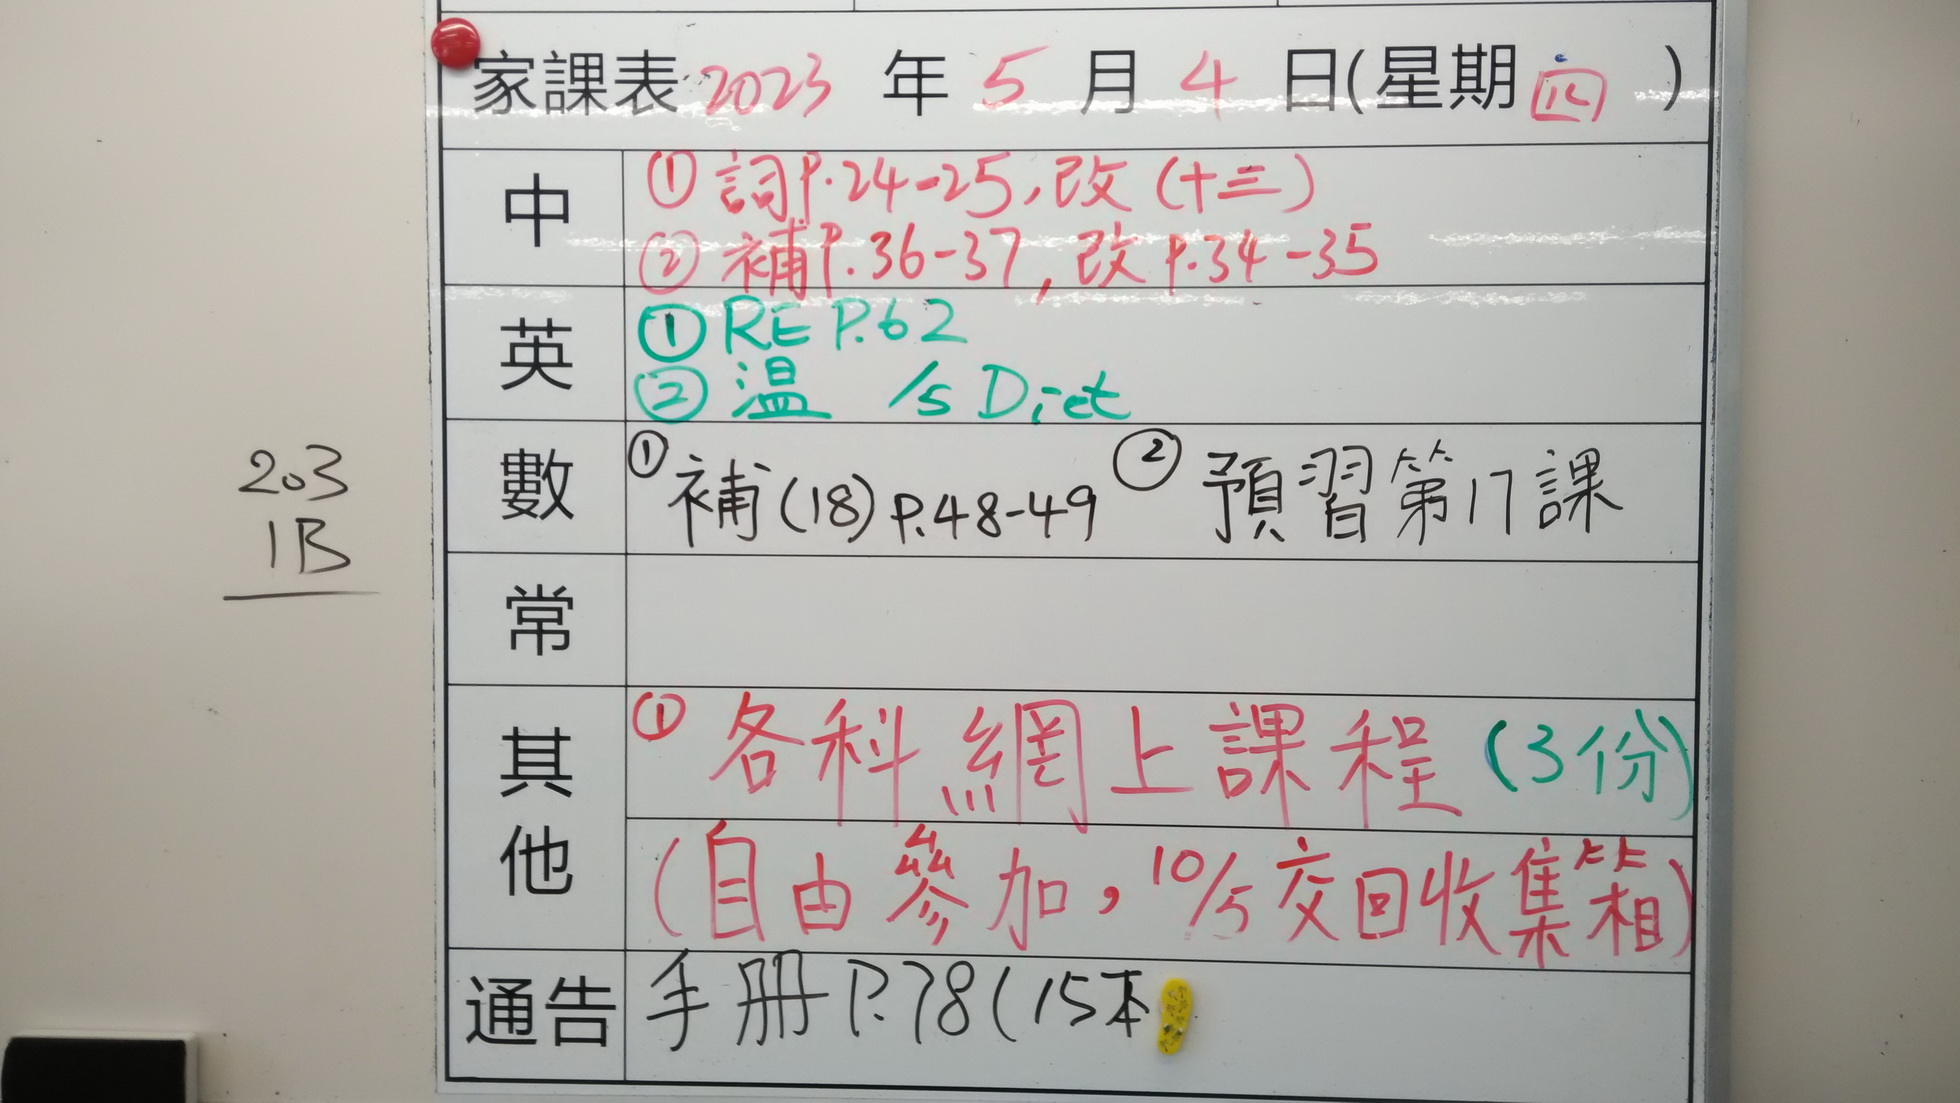 家課表 2023 年 5 月 4 日(星期四)
中
① 詞P.24-25,改(十三)
② 補P.36-37,改P.34-35
英
① RE P.62
② 温 /5 Dict
數
① 補(18)P.48-49 ② 預習第17課
常
其他
① 各科網上課程(3份)
(自由參加,10/5交回收集箱)
通告
手冊P.78(15本
203
1B